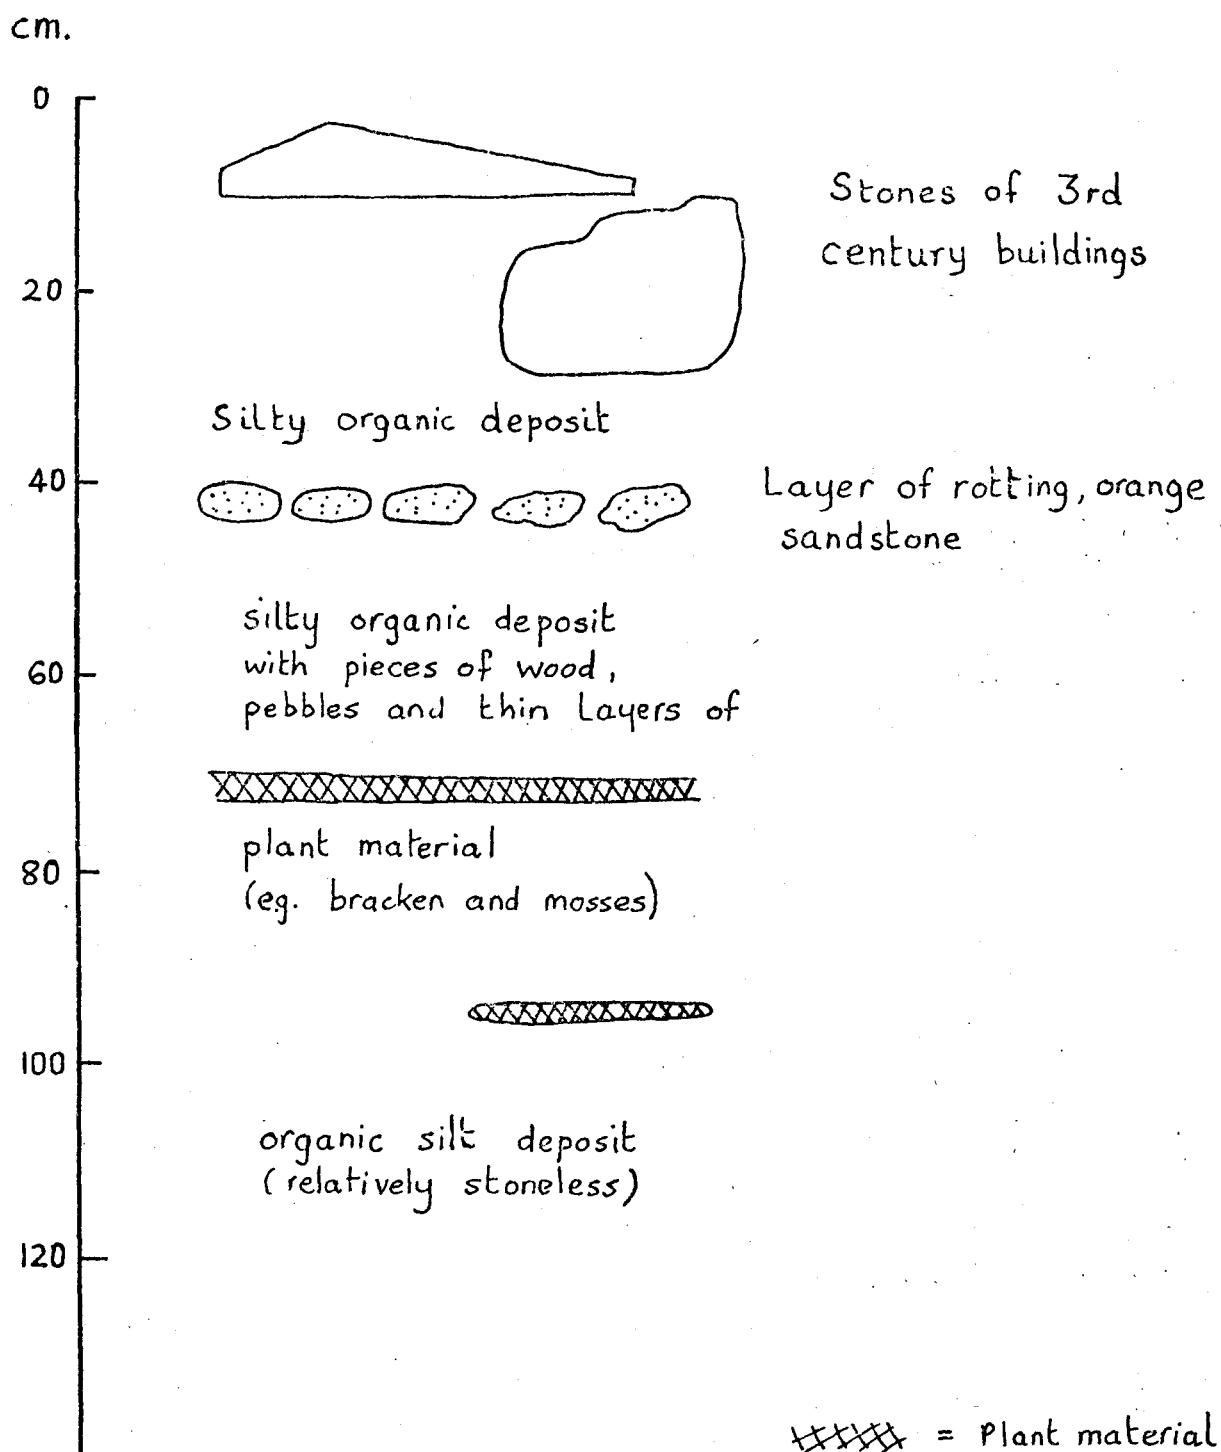 cm.
0
Stones of 3rd
century buildings
20
Silty organic deposit
40
Layer of rotting, orange
sandstone
silty organic deposit
with pieces of wood,
60
pebbles and thin layers of
plant material
80
(eg. bracken and mosses)
100
organic silt deposit
(relatively stoneless)
120
= Plant material